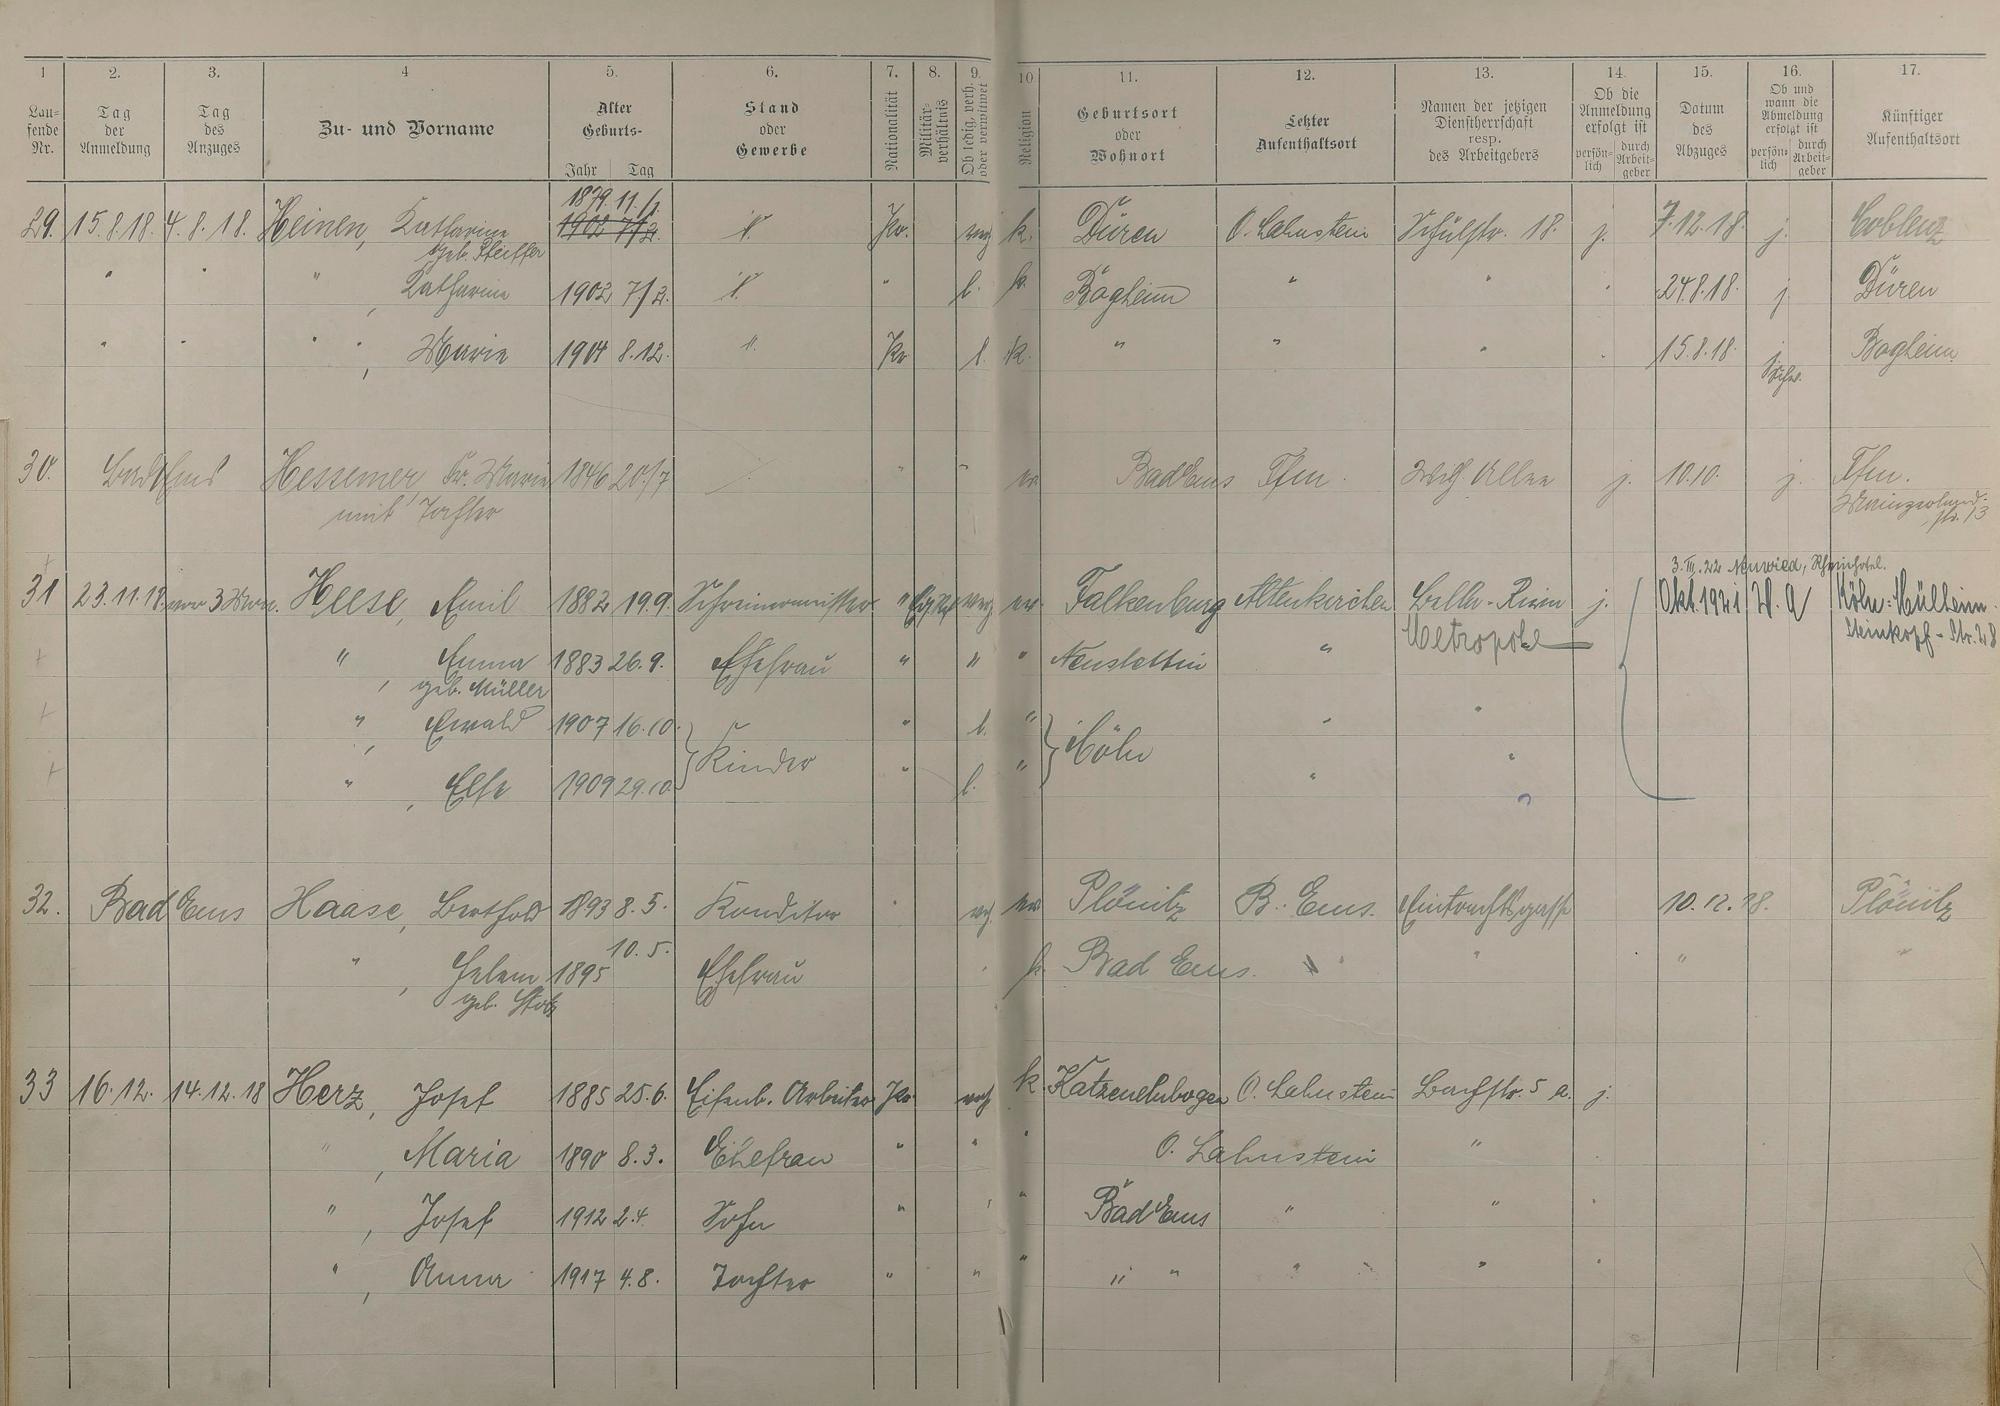 1 2. 3. 4 5. 6. 7. 8. 9. 10 11. 12. 13. 14. 15. 16. 17.
Lau-
fende
Nr.
Tag
der
Anmeldung
Tag
des
Anzuges
Zu- und Vorname
Alter
Geburts-
Jahr Tag
Stand
oder
Gewerbe
Nationalität
Militär-
verhältnis
Ob ledig, verh.
oder verwitwet
Religion
Geburtsort
oder
Wohnort
Letzter
Aufenthaltsort
Namen der jetzigen
Dienstherrschaft
resp.
des Arbeitgebers
Ob die
Anmeldung
erfolgt ist
persön-
lich
durch
Arbeit-
geber
Datum
des
Abzuges
Ob und
wann die
Abmeldung
erfolgt ist
persön-
lich
durch
Arbeit-
geber
Künftiger
Aufenthaltsort
1879 11/1
29. 15.8.18. 4.8.18. Heinen, Katharine 1902 7/2. Pr. k. Düren O. Lahnstein Schulstr. 18. j. 7.12.18. j. Coblenz
geb. Pfeiffer
" " " , Katharine 1902 7/2. " l. k. Bogheim " " " 24.8.18. j. Düren
" " " , Marie 1904 8.12. " Pr l. k. " " " 15.8.18. Bogheim
30. Bad Ems Hessemer Fr. Marie 1846 20/7 " " ev Bad Ems Ffm. Wilh Allee j. 10.10. j. Ffm.
mit Tochter
Mainzerland-
str. 13
3.III.22 Neuwied, Rheinhotel.
31 23.11.18. vor 3 Woch. Heese, Emil 1882 19.9. Schreinermeister " ev. Falkenburg Altenkirchen j. Okt. 1921 W. A Köln-Mülheim
Metropole
Steinkopf-Str. 28
" , Emma 1883 26.9. Ehefrau " " " Neustettin "
geb. Müller
" , Ewald 1907 16.10. " l. " " "
Kinder Köln
" , Else 1909 29.10. " l. " " "
32. Bad Ems Haase, Berthold 1893 8.5. Konditor " ev Plönitz B. Ems. Eintrachtsgasse 10.12.18. Plönitz
" , Helene 1895 10.5. Ehefrau k. Bad Ems. " " " "
geb. Stotz
33 16.12. 14.12.18 Herz, Josef 1885 25.6. Eisenb. Arbeiter Pr. verh k. Katzenelnbogen O. Lahnstein Bachstr. 5 a. j.
" , Maria 1890 8.3. Ehefrau " " " O. Lahnstein "
" , Josef 1912 2.4. Sohn " " " Bad Ems " "
" , Anna 1917 4.8. Tochter " " " " " " "